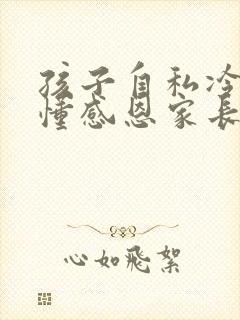 孩子自私冷
懂感恩家长
心如飛絮